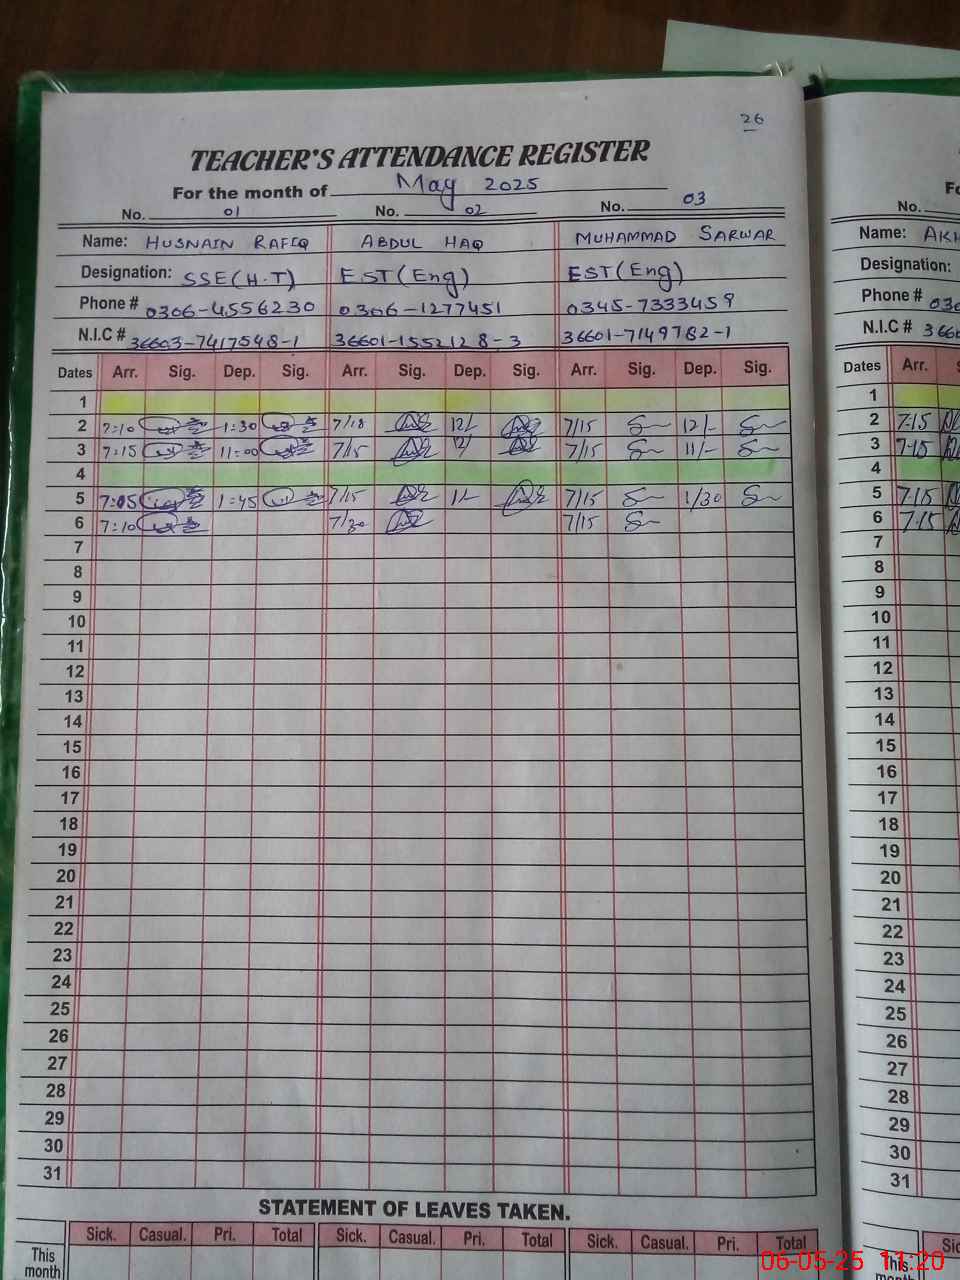 26
TEACHER'S ATTENDANCE REGISTER
For the month of May 2025
No. 01 No. 02 No. 03
Name: HUSNAIN RAFIQ ABDUL HAQ MUHAMMAD SARWAR
Designation: SSE(H.T) EST(Eng) EST(Eng)
Phone # 0306-4556230 0306-1277451 0345-7333459
N.I.C # 36603-7417548-1 36601-1552128-3 36601-7149782-1
Dates Arr. Sig. Dep. Sig. Arr. Sig. Dep. Sig. Arr. Sig. Dep. Sig.
1
2 7:10 1:30 7/18 12/- 7/15 12/-
3 7:15 11:00 7/15 12/ 7/15 11/-
4
5 7:05 1:45 7/15 1/- 7/15 1/30
6 7:10 7/30 7/15
7
8
9
10
11
12
13
14
15
16
17
18
19
20
21
22
23
24
25
26
27
28
29
30
31
STATEMENT OF LEAVES TAKEN.
Sick. Casual. Pri. Total Sick. Casual. Pri. Total Sick. Casual. Pri. Total
This month
No.
Name:
Designation:
Phone #
N.I.C #
Dates Arr.
1
2 7-15
3 7-15
4
5 7-15
6 7-15
7
8
9
10
11
12
13
14
15
16
17
18
19
20
21
22
23
24
25
26
27
28
29
30
31
This month
06-05-25 11:20